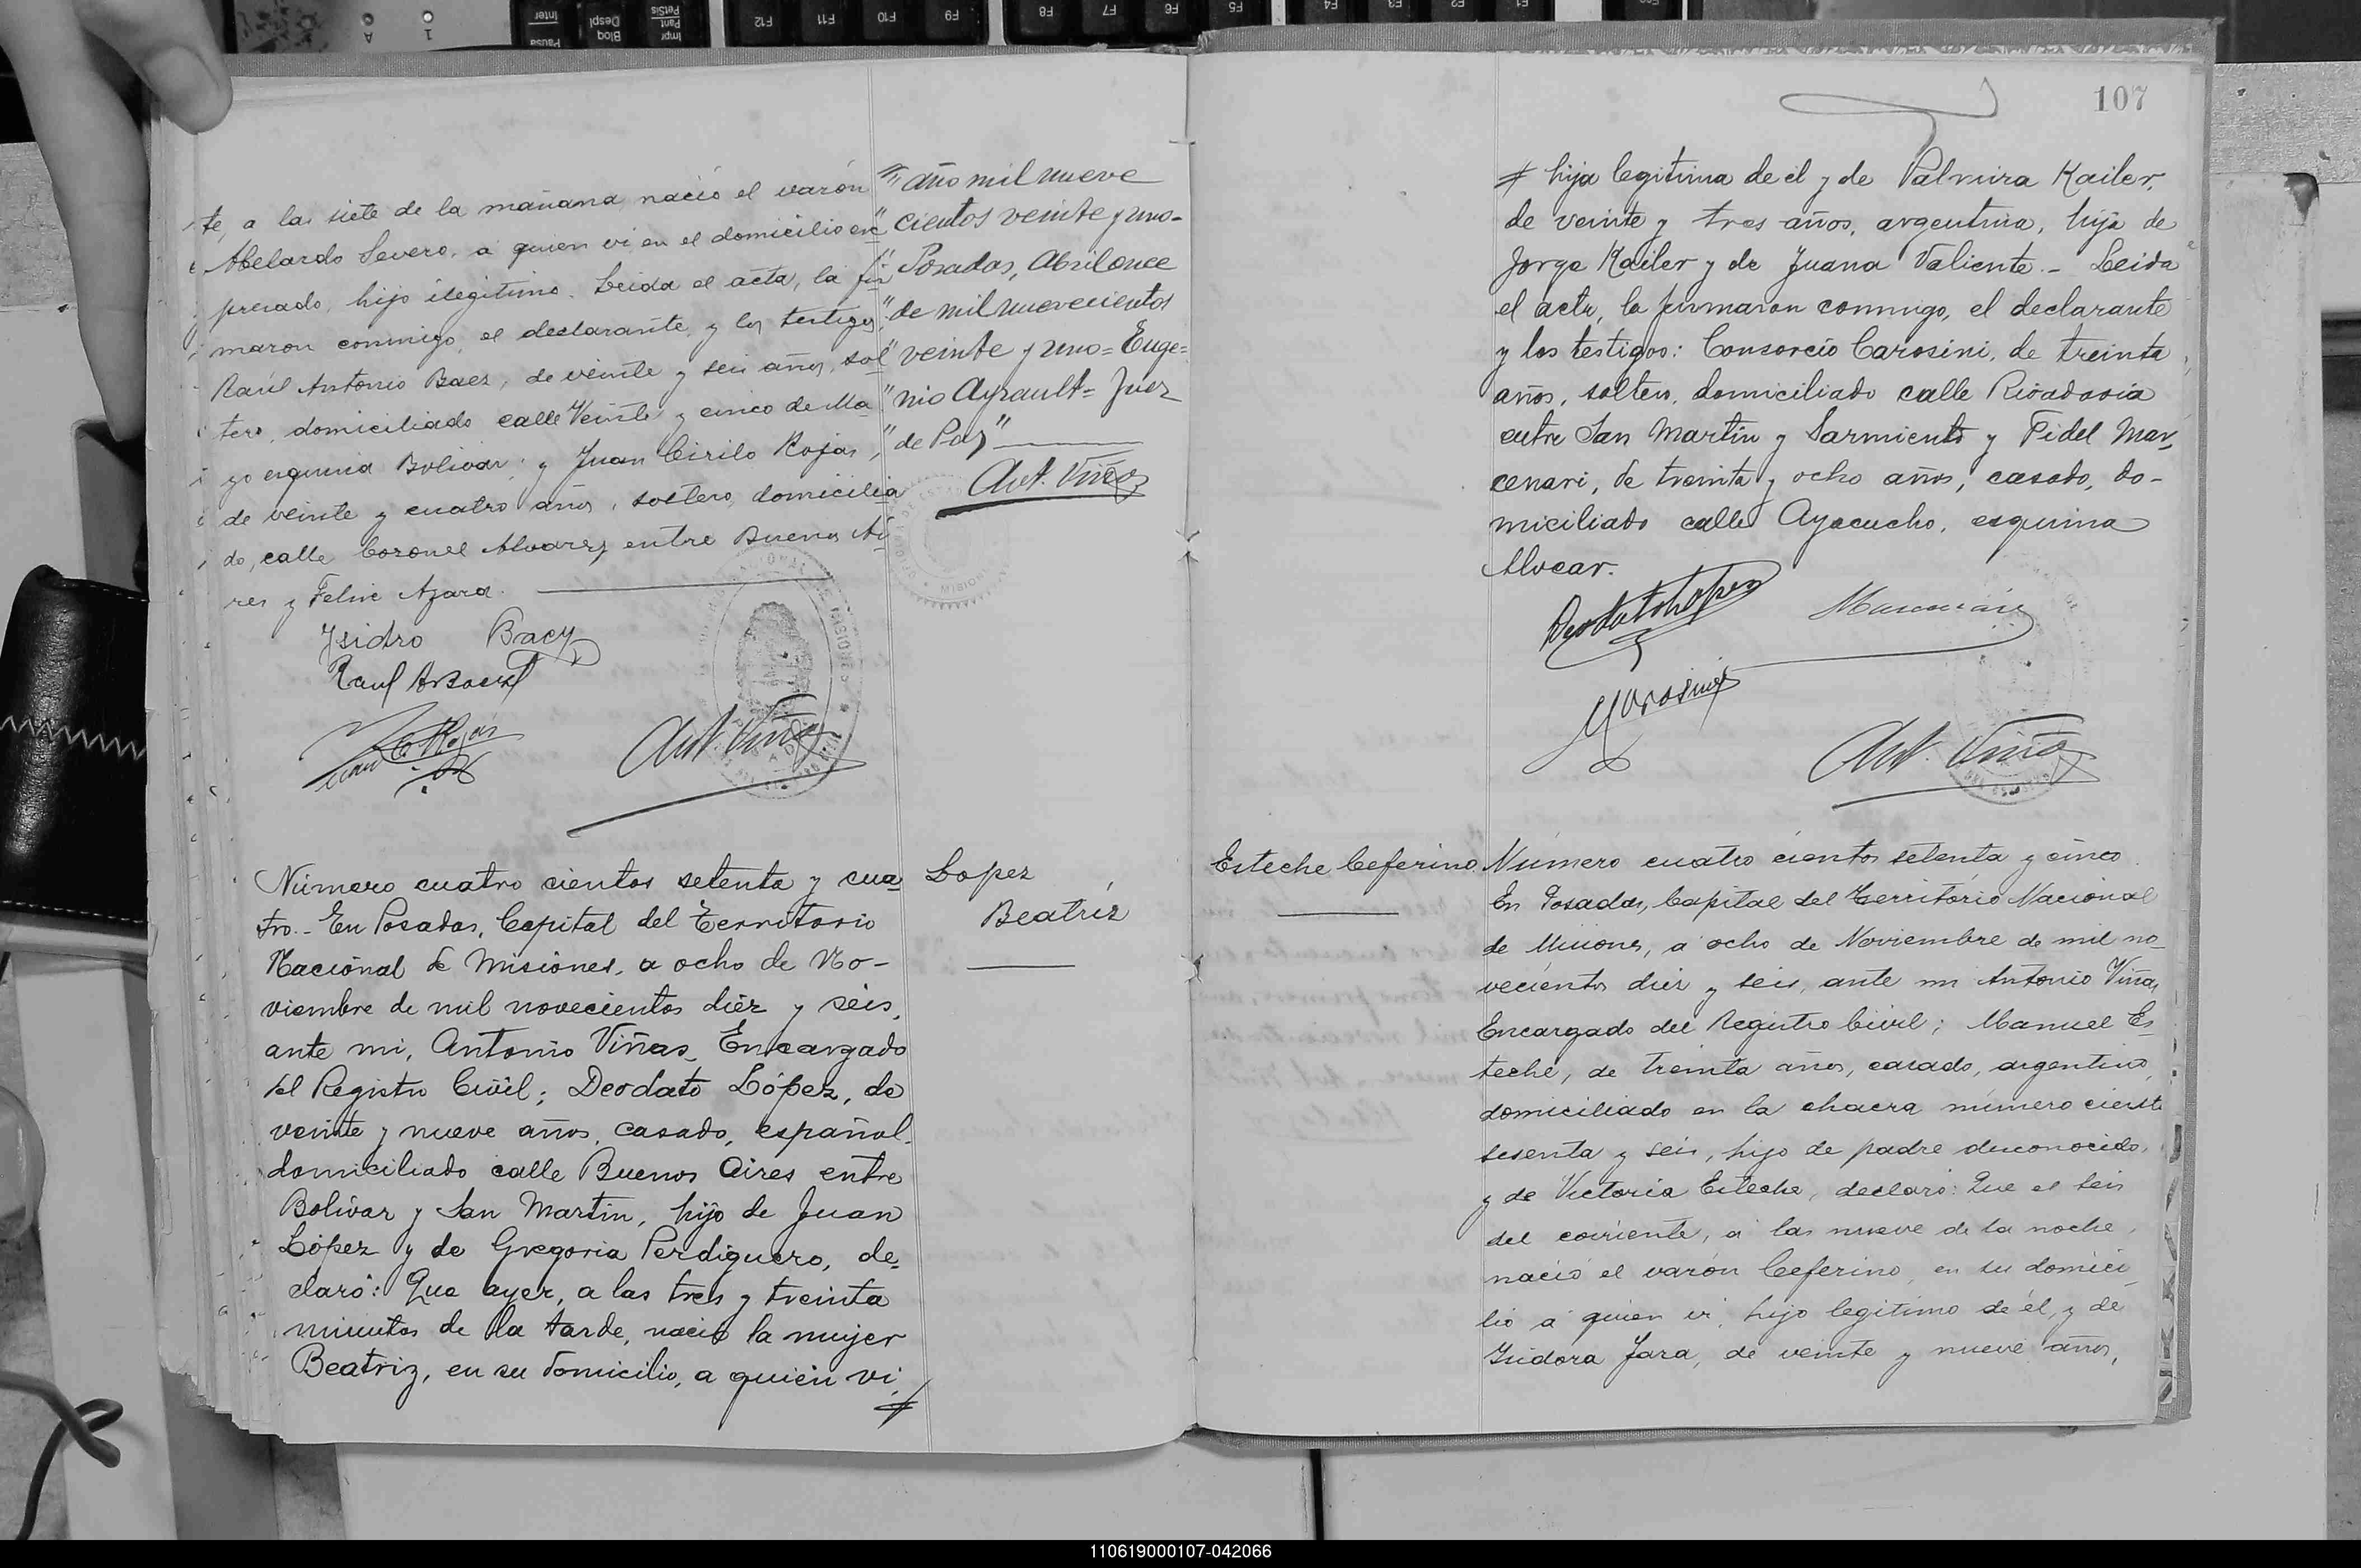 107
te, a las siete de la mañana nació el varón
Abelardo Severo, a quien vi en el domicilio ex
presado, hijo ilegitimo. Leida el acta, la fir
maron conmigo, el declarante y los testigos:
Raúl Antonio Baez, de veinte y seis años, sol
tero, domiciliado calle Veinte y cinco de Ma
yo esquina Bolivar; y Juan Cirilo Rojas,
de veinte y cuatro años, soltero, domicilia
do, calle Coronel Alvarez entre Buenos Ai
res y Felix Azara.
Isidro Bacy
Raul A Baez
Juan C Rojas
Ant. Viñas
" año mil nueve
" cientos veinte y uno-
" Posadas, Abril once
" de mil nuevecientos
" veinte y uno = Euge=
" nio Ayrault = Juez
" de Paz"
Ant. Viñas
Número cuatro cientos setenta y cua
tro.- En Posadas, Capital del Territorio
Nacional de Misiones, a ocho de No-
viembre de mil novecientos diéz y séis,
ante mi, Antonio Viñas, Encargado
del Registro Civil; Deodato López, de
veinte y nueve años, casado, español,
domiciliado calle Buenos Aires entre
Bolívar y San Martin, hijo de Juan
López y de Gregoria Perdiguero, de-
claró: Que ayer, a las tres y treinta
minutos de la tarde, nació la mujer
Beatriz, en su domicilio, a quién vi,
#
Lopez
Beatríz
# hija legitima de él y de Palmira Kailer,
de veinte y tres años, argentina, hija de
Jorge Kailer y de Juana Valiente.- Leida
el acta, la firmaron conmigo, el declarante
y los testigos: Consorcio Carosini, de treinta
años, soltero, domiciliado calle Rivadavia
entre San Martin y Sarmiento y Fidel Mar-
cenari, de treinta y ocho años, casado, do-
miciliado calle Ayacucho, esquina
Alvear.
Deodato Lopez
Marcenari
Carosini
Ant. Viñas
Esteche Ceferino
Número cuatro cientos setenta y cinco.
En Posadas, Capital del Territorio Nacional
de Misiones, a ocho de Noviembre de mil no
vecientos diez y seis, ante mi Antonio Viñas,
Encargado del Registro Civil; Manuel Es
teche, de treinta años, casado, argentino,
domiciliado en la chacra número ciento
sesenta y seis, hijo de padre desconocido,
y de Victoria Esteche, declaró: Que el seis
del corriente, a las nueve de la noche,
nació el varón Ceferino, en su domici
lio a quien vi, hijo legitimo de él, y de
Isidora Jara, de veinte y nueve años,
Inter
Pausa
Despl
Bloq
PetSis
Impr
Pant
F12
F11
F10
F9
F8
F7
F6
F5
F4
F3
F2
F1
A
1
110619000107-042066